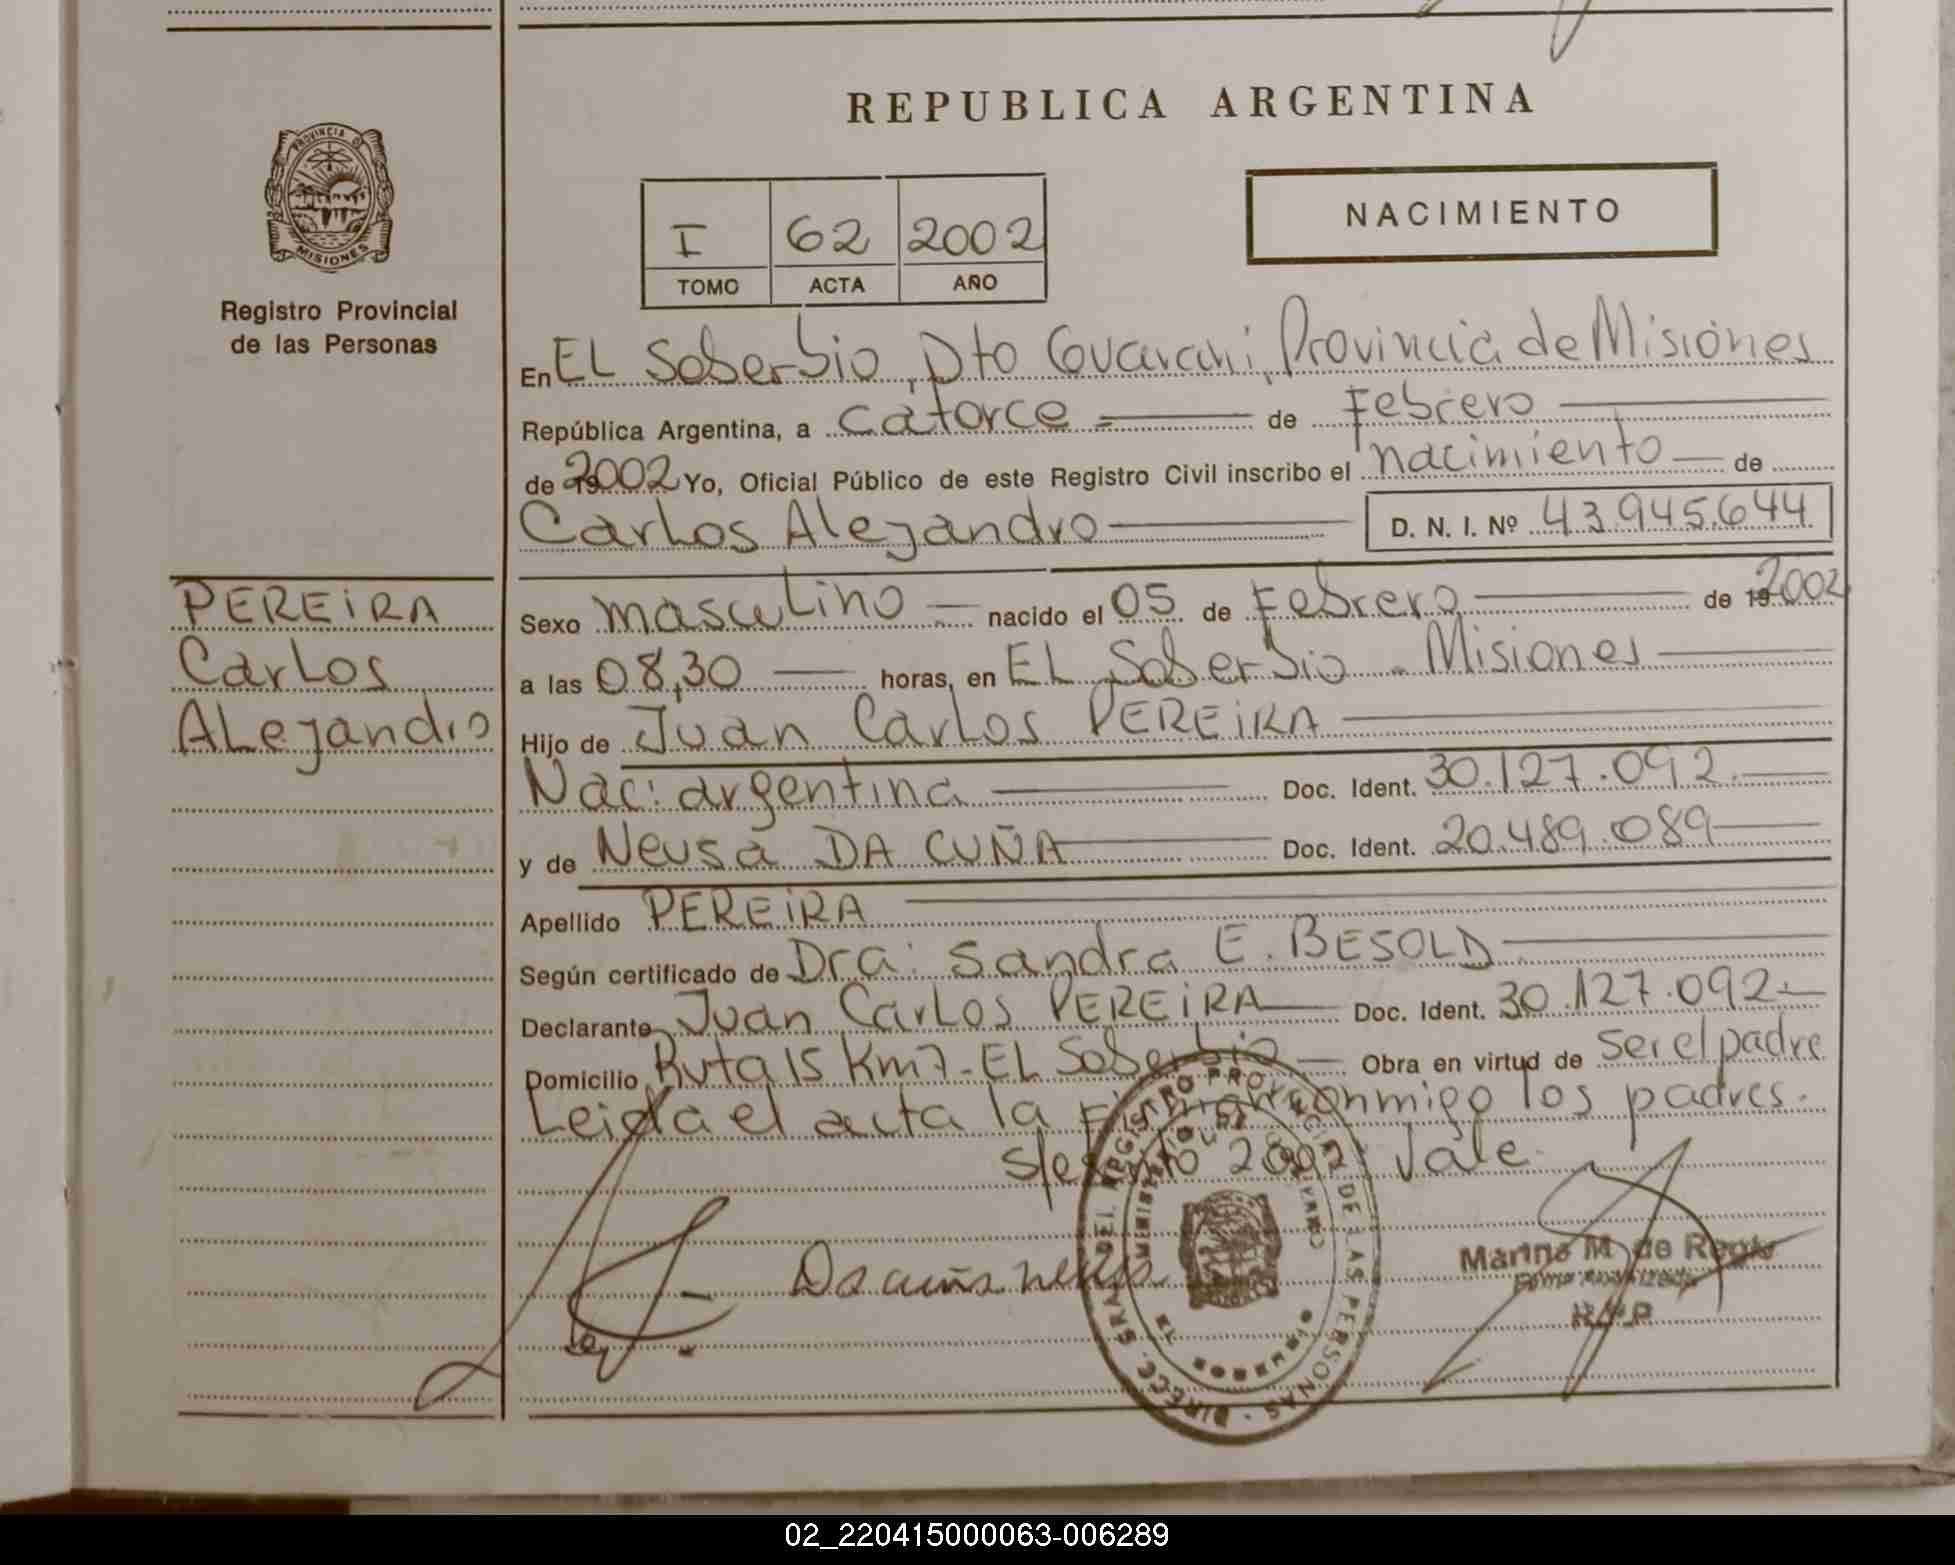 PROVINCIA DE
MISIONES
Registro Provincial
de las Personas
PEREIRA
Carlos
Alejandro
REPUBLICA ARGENTINA
I 62 2002
TOMO ACTA AÑO
NACIMIENTO
En EL Soberbio, Dto Guarani, Provincia de Misiones
República Argentina, a catorce de Febrero
de 2002 Yo, Oficial Público de este Registro Civil inscribo el nacimiento de
Carlos Alejandro D. N. I. Nº 43.945.644
Sexo masculino nacido el 05 de Febrero de 2002
a las 08,30 horas, en EL Soberbio - Misiones
Hijo de Juan Carlos PEREIRA
Nac: argentina Doc. Ident. 30.127.092.
y de Neusa DA CUÑA Doc. Ident. 20.489.089
Apellido PEREIRA
Según certificado de Dra: Sandra E. BESOLD
Declarante Juan Carlos PEREIRA Doc. Ident. 30.127.092.-
Domicilio Ruta 15 Km 7 - EL Soberbio Obra en virtud de ser el padre
Leida el acta la firman conmigo los padres.
2002 Vale.
Da cuña neusa
Marina M. de
DIREC. GRAL. DEL REGISTRO PROVINCIAL DE LAS PERSONAS
MINISTERIO DE GOBIERNO
EL SOBERBIO
02_220415000063-006289